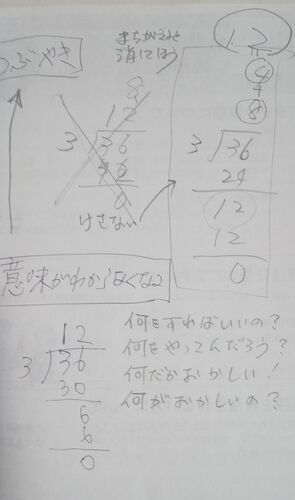 つぶやき
まちがえを
消にほう
8
12
3)36
36
0
けさない
12
4
8
3)36
24
12
12
0
意味がわからなくなる
12
3)36
30
6
6
0
何をすればいいの?
何をやってんだろう?
何だかおかしい!
何がおかしいの?